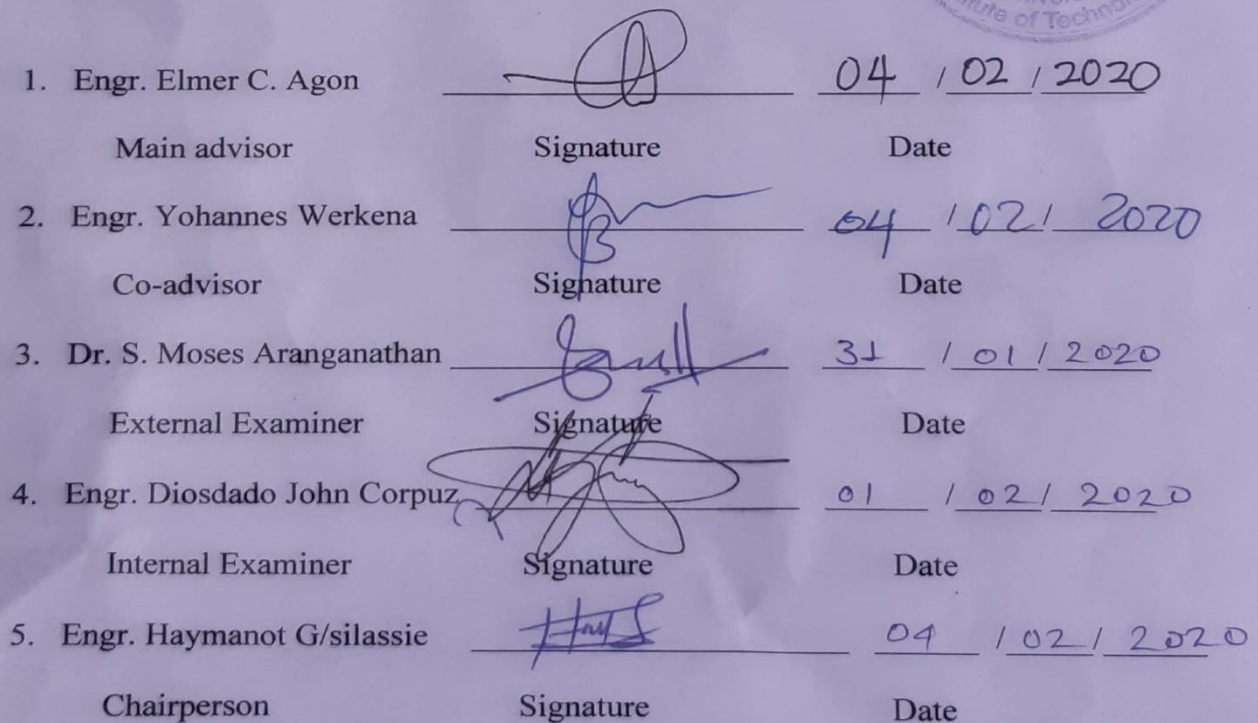 of Techno
1. Engr. Elmer C. Agon 04 / 02 / 2020
Main advisor Signature Date
2. Engr. Yohannes Werkena 04 / 02 / 2020
Co-advisor Signature Date
3. Dr. S. Moses Aranganathan 31 / 01 / 2020
External Examiner Signature Date
4. Engr. Diosdado John Corpuz 01 / 02 / 2020
Internal Examiner Signature Date
5. Engr. Haymanot G/silassie 04 / 02 / 2020
Chairperson Signature Date